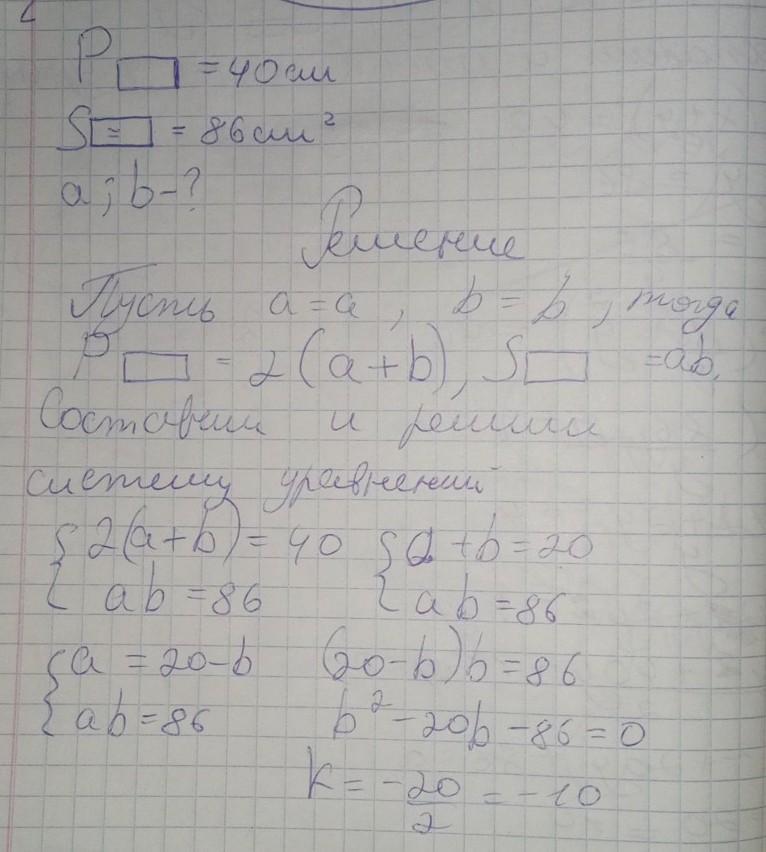 P▭ = 40 см
S▭ = 86 см²
a; b - ?
Решение
Пусть a = a, b = b, тогда
P▭ = 2(a+b), S▭ = ab.
Составим и решим
систему уравнений
{2(a+b) = 40 {a + b = 20
{ab = 86 {ab = 86
{a = 20-b (20-b)b = 86
{ab = 86 b² - 20b - 86 = 0
k = -20/2 = -10